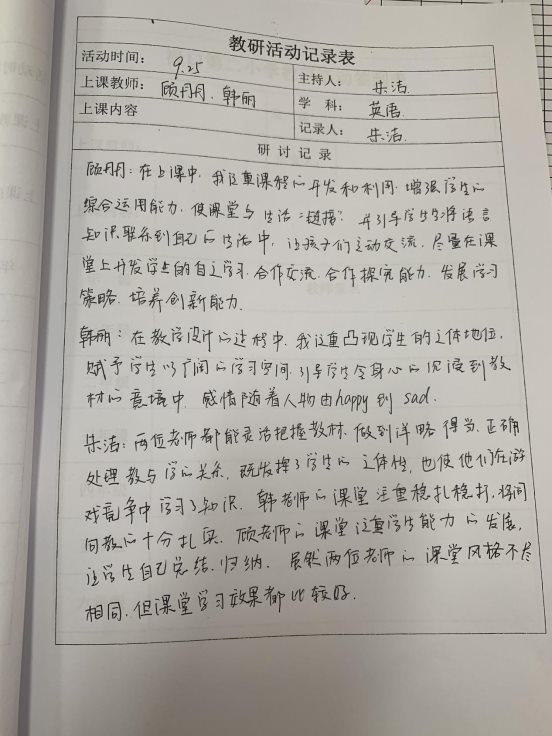 教研活动记录表
活动时间： 9.25
主持人： 朱洁.
上课教师： 顾丹丹、韩丽
学 科： 英语.
上课内容
记录人： 朱洁.
研 讨 记 录
顾丹丹：在上课中，我注重课程的开发和利用，增强学生的
综合运用能力，使课堂与生活"链接"，并引导学生将语言
知识联系到自己的生活中，让孩子们主动交流，尽量在课
堂上开发学生的自主学习、合作交流、合作探究能力，发展学习
策略，培养创新能力.
韩丽：在教学设计的过程中，我注重凸现学生的主体地位，
赋予学生以广阔的学习空间，引导学生全身心的沉浸到教
材的意境中，感情随着人物由happy到 sad.
朱洁：两位老师都能灵活把握教材，做到详略得当，正确
处理教与学的关系，既发挥了学生的主体性，也使他们在游
戏竞争中学习了知识. 韩老师的课堂注重稳扎稳打，将词
句教的十分扎实. 顾老师的课堂注重学生能力的发展，
让学生自己总结、归纳. 虽然两位老师的课堂风格不尽
相同，但课堂学习效果都比较好.